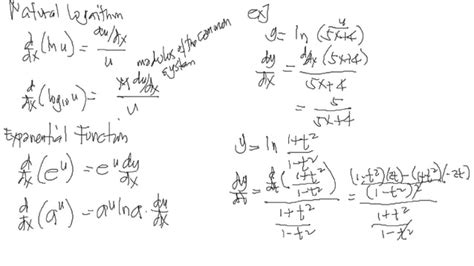 Natural Logarithm
d/dx (ln u) = (du/dx)/u
modulus of the common system
d/dx (log₁₀ u) = (M du/dx)/u
Exponential Function
d/dx (e^u) = e^u du/dx
d/dx (a^u) = a^u ln a · du/dx
ex)
u
y = ln (5x+4)
dy/dx = (d/dx (5x+4))/(5x+4)
= 5/(5x+4)
y = ln (1+t²)/(1-t²)
dy/dt = (d/dt ((1+t²)/(1-t²)))/((1+t²)/(1-t²)) = (((1-t²)(2t)-(1+t²)(-2t))/(1-t²)²)/((1+t²)/(1-t²))